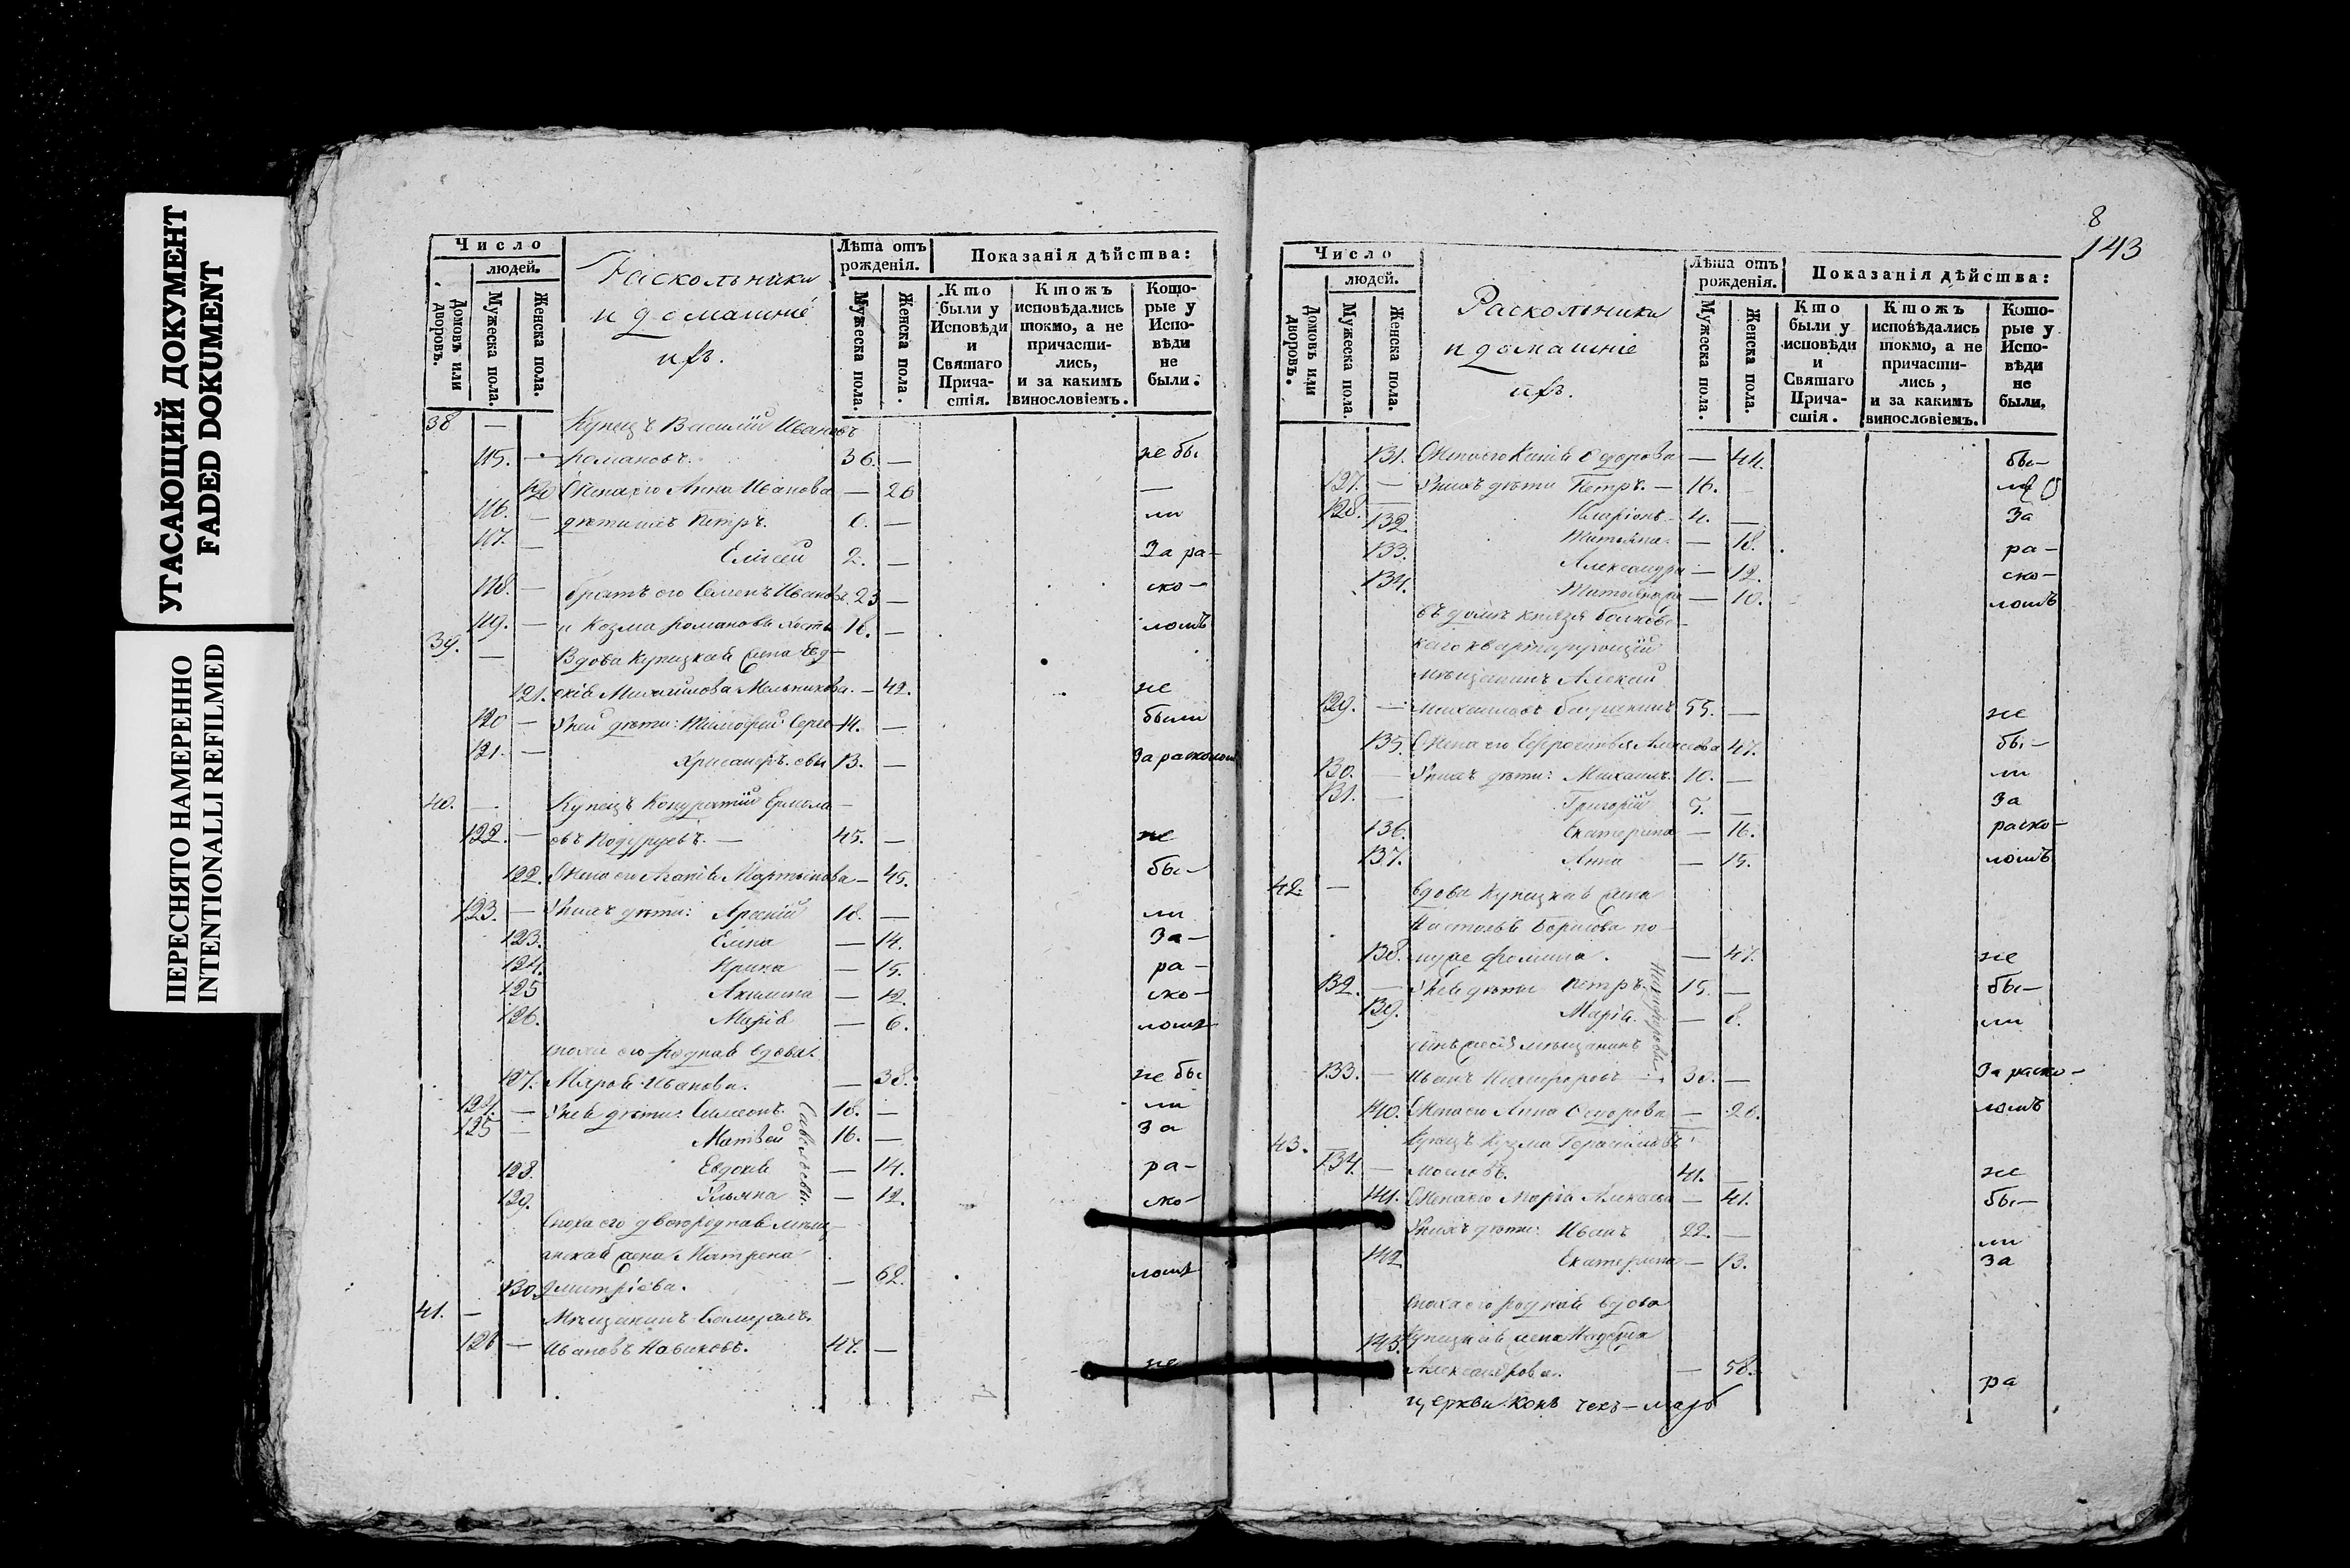 УГАСАЮЩИЙ ДОКУМЕНТ
FADED DOKUMENT
ПЕРЕСНЯТО НАМЕРЕННО
INTENTIONALLI REFILMED
Число
людей.
Домовъ или дворовъ.
Мужеска пола.
Женска пола.
Раскольники
и домашніе
ихъ.
Лѣта отъ рожденія.
Мужеска пола.
Женска пола.
Показанія дѣйства:
Кто были у Исповѣди и Святаго Прича-стія.
Ктожъ исповѣдались токмо, а не причасти-лись, и за какимъ винословіемъ.
Кото-рые у Испо-вѣди не были.
38 — Купецъ Василій Ивановъ
115. — романовъ. 36. — не бы
120 Жена его Анна Иванова — 26 —
116. — дѣти ихъ Петръ. — ли
117. — Елисей 2. — За ра-
118. — братъ его Семенъ Ивановъ. 23 — ско-
119. — и Козма романовы 18. — ломъ
39. — Вдова купецкая жена Евд-
121. окія Михайлова Мельникова. — 42. не
120 — У ней дѣти: Тимофей 14. — были
121. — Хрисанфъ. 13. — За расколом
40. — Купецъ Кондратій Ермола-
122. — овъ 45. — не
122. Жена его Агапія Мартынова — 45. бы-
123. — У нихъ дѣти: Арсеній 18. — ли
123. Елена — 14. За-
124. Ирина — 15. ра-
125 Акилина — 12. ско-
126. Марія — 6. ломъ
его родная вдова.
127. Иванова. — 38. не бы
124. — У ней дѣти: Симеонъ. 18. — ли
125 — Матвей 16. — За
Савельевы
128. Евдокія — 14. ра-
129. Ульяна — 12. ско-
Сноха его двоюродная мѣщ-
анская жена Матрена
130. Дмитріева. — 62. ломъ
41. — Мѣщанинъ
126 — Ивановъ Новиковъ. 47. — не
8
143
Число
людей.
Домовъ или дворовъ.
Мужеска пола.
Женска пола.
Раскольники
и домашніе
ихъ.
Лѣта отъ рожденія.
Мужеска пола.
Женска пола.
Показанія дѣйства:
Кто были у исповѣди и Святаго Прича-стія.
Ктожъ исповѣдались токмо, а не причасти-лись, и за какимъ винословіемъ.
Кото-рые у Испо-вѣди не были.
131. Жена его Ѳедорова — 44. бы-
127. — У нихъ дѣти Петръ. — 16. ли
128. Иларіонъ. 4. — За
132. Татьяна. — 18. ра-
133. Александра — 12. ско-
134. — 10. ломъ
въ домѣ князя
квартирующій
мѣщанинъ Алексей
129. — Михайловъ 55. — не
135. Жена его 47. бы-
130. — У нихъ дѣти: Михаилъ. 10. — ли
131. — Григорій 5. — За
136. Екатерина — 16. раско-
137. Анна — 15. ломъ
42. — вдова купецкая жена
Борисова по
138. мужѣ Фомина. — 47. не
132. — У ней дѣти Петръ. 15. — бы-
Никифоровы
139. Марія. — 8. ли
мѣщанинъ
133. — Иванъ Никифоровъ 30. — За раско-
140. Жена его Анна Ѳедорова — 26. ломъ
43. Купецъ Кузма Герасимовъ
134. — 41. — не
141. Жена его Марія — 41. бы-
У нихъ дѣти: Иванъ 22. — ли
142 Екатерина — 13. За
Сноха его родная вдова
143. Купецкая жена
Александрова. — 58. ра
церкви